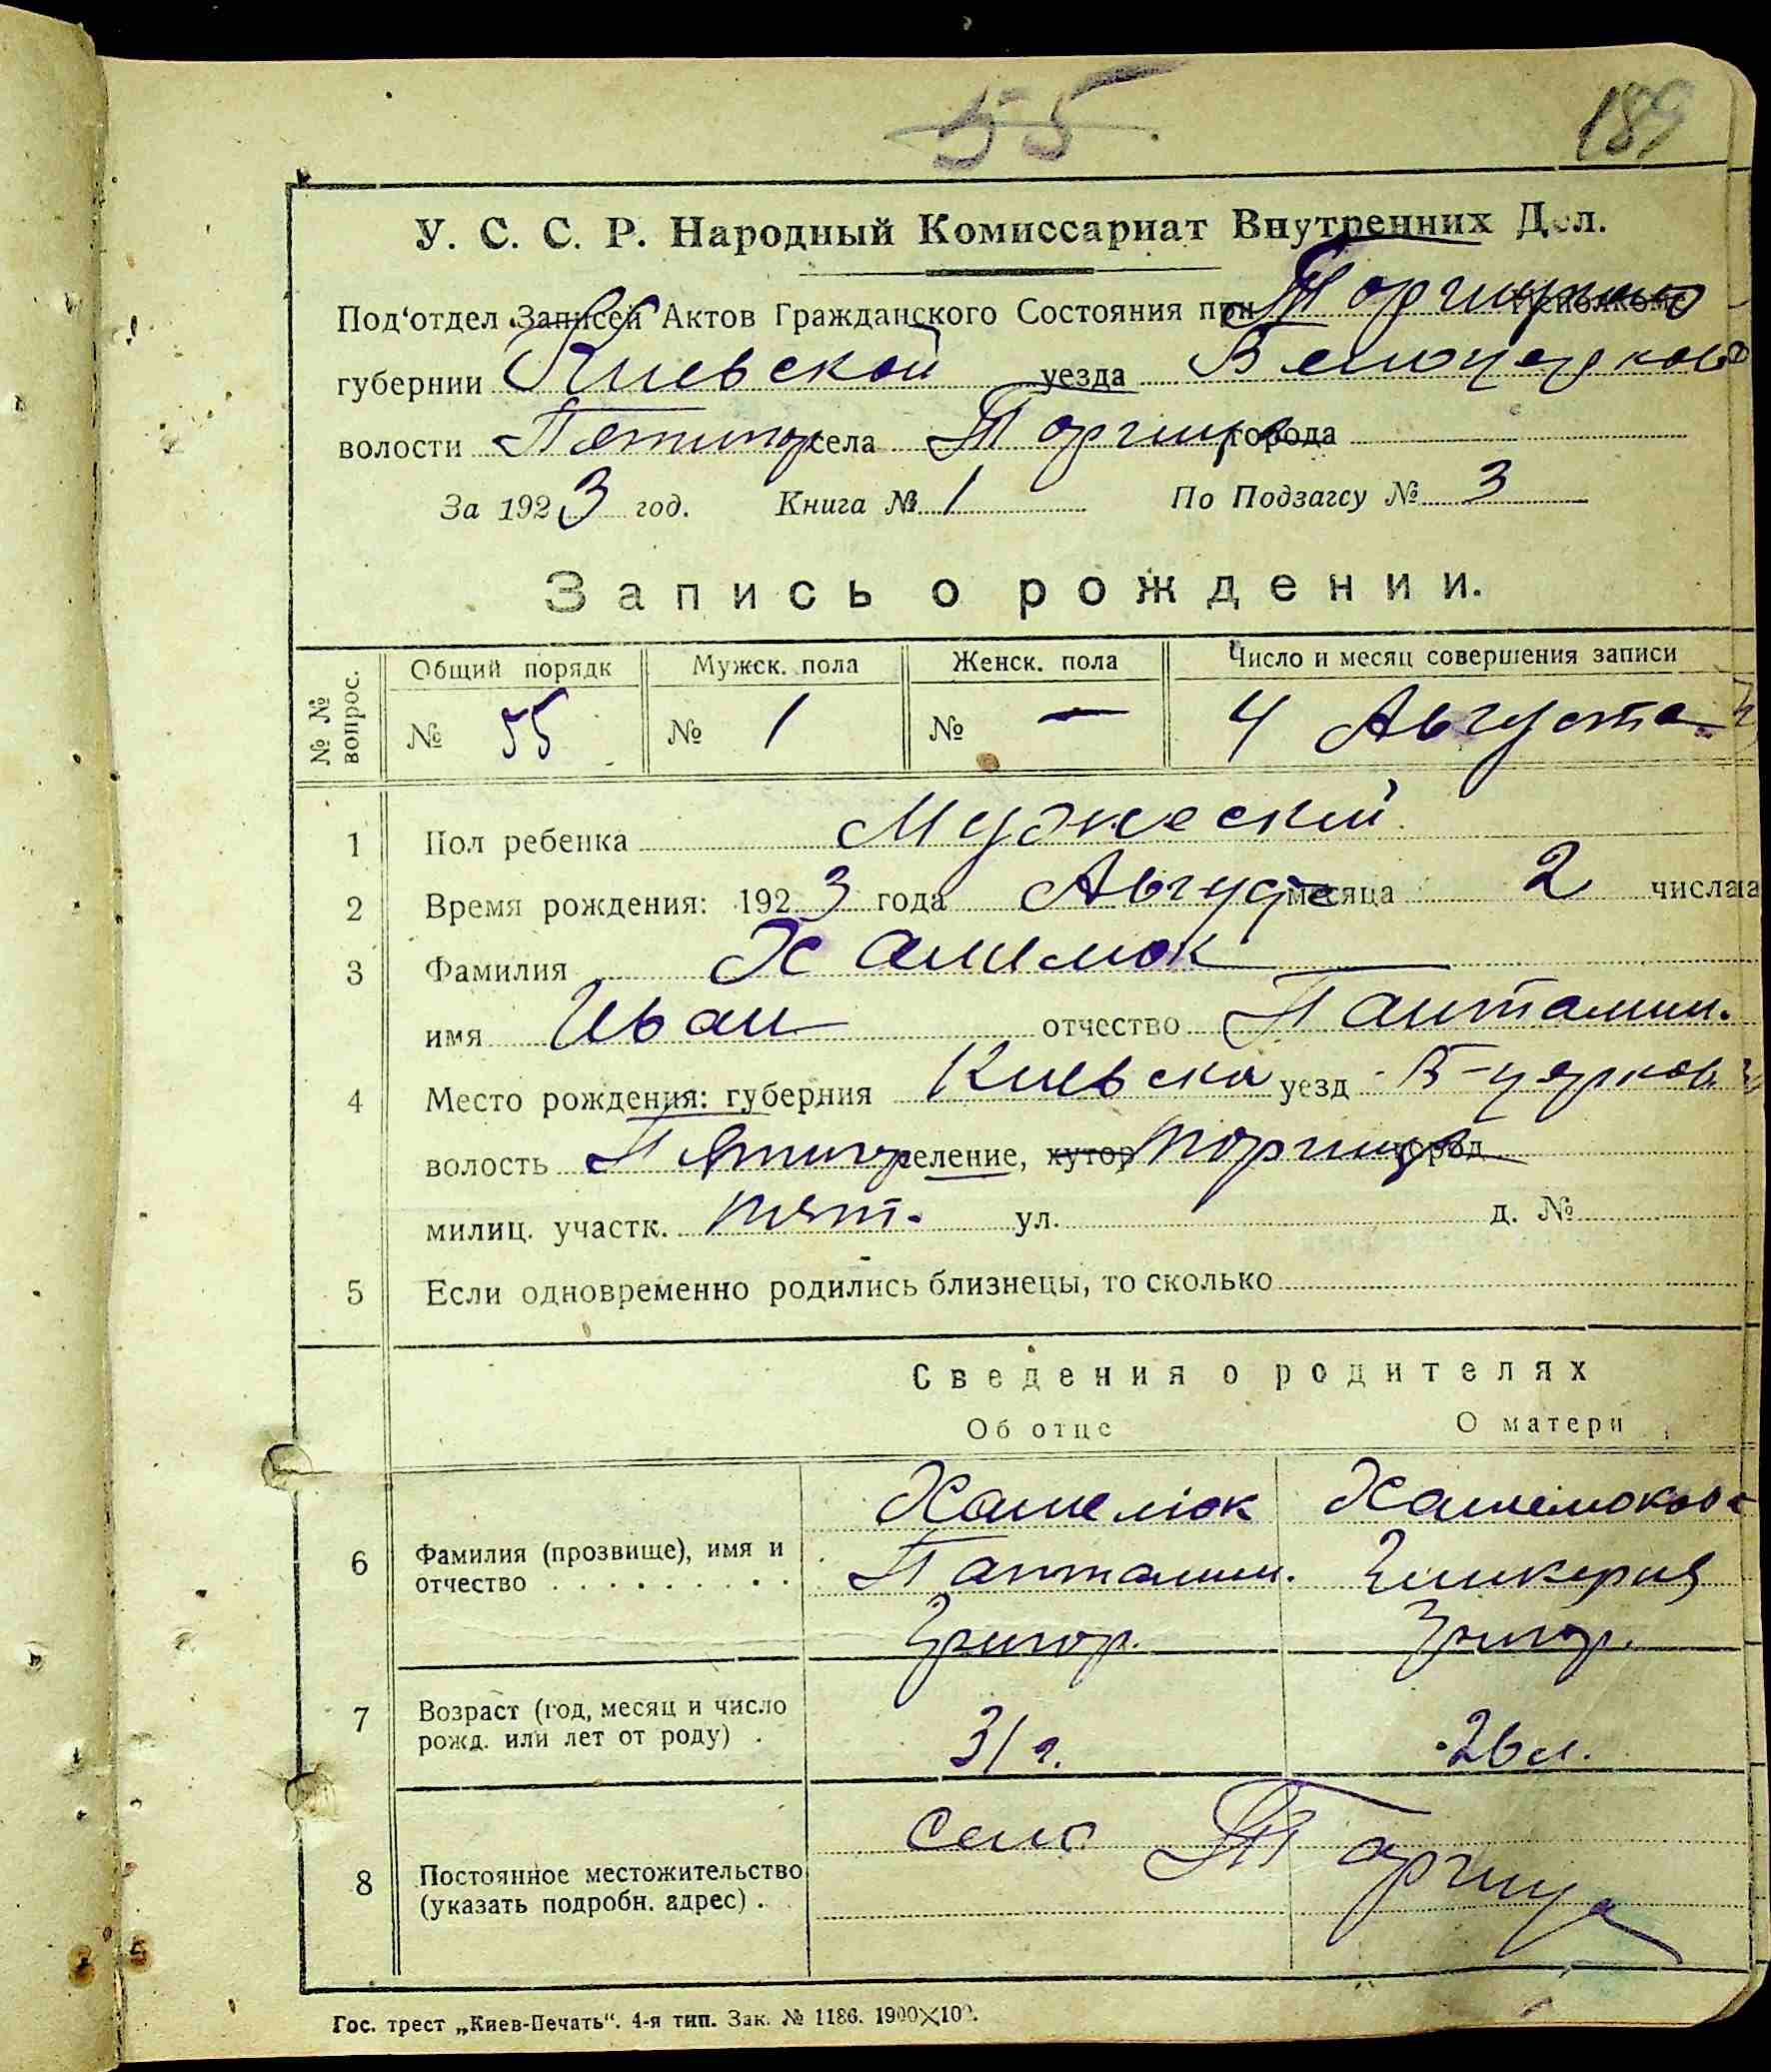 55
189
У. С. С. Р. Народный Комиссариат Внутренних Дел.
Под‘отдел Записей Актов Гражданского Состояния при Исполкоме
губернии Киевской уезда Белоцерков
волости Пятигор села Торчица города
За 1923 год. Книга № 1 По Подзагсу № 3
Запись о рождении.
№ № вопрос. Общий порядк Мужск. пола Женск. пола Число и месяц совершения записи
№ 55 № 1 № — 4 Августа
1 Пол ребенка Мужеский
2 Время рождения: 1923 года Августа месяца 2 числа
3 Фамилия
имя Иван отчество Панталим.
4 Место рождения: губерния Киевска уезд Б-церков.
волость Пятигор селение, хутор Торчица город
милиц. участк. Пят. ул. д. №
5 Если одновременно родились близнецы, то сколько
Сведения о родителях
Об отце О матери
6 Фамилия (прозвище), имя и отчество
Панталим.
Григор. Григор.
7 Возраст (год, месяц и число рожд. или лет от роду) . 31 г. 26 л.
8 Постоянное местожительство (указать подробн. адрес) . село Торчица
Гос. трест „Киев-Печать“. 4-я тип. Зак. № 1186. 1900×100.